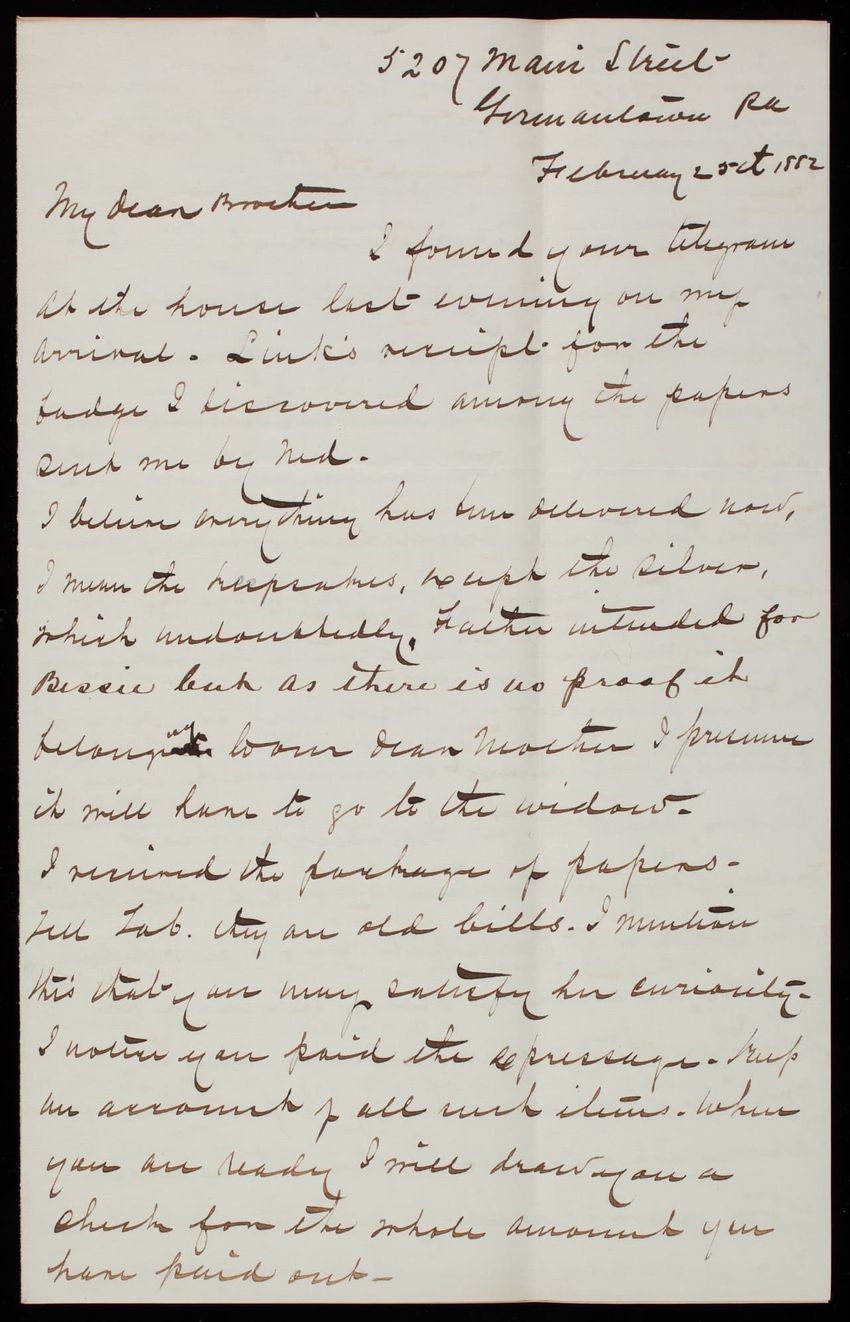 5207 Main Street
Germantown Pa
February 25th 1882
My dear Brother
I found your telegram
at the house last evening on my
arrival. Link's receipt for the
badge I discovered among the papers
sent me by Ned.
I believe everything has been delivered now,
I mean the keepsakes, except the silver,
which undoubtedly, Father intended for
Bessie but as there is no proof it
belonging to our dear Mother I presume
it will have to go to the widow.
I received the package of papers.
Tell Lob. they are old bills. I mention
this that you may satisfy her curiosity.
I notice you paid the expressage. Keep
an account of all such items. When
you are ready I will draw you a
check for the whole amount you
have paid out.